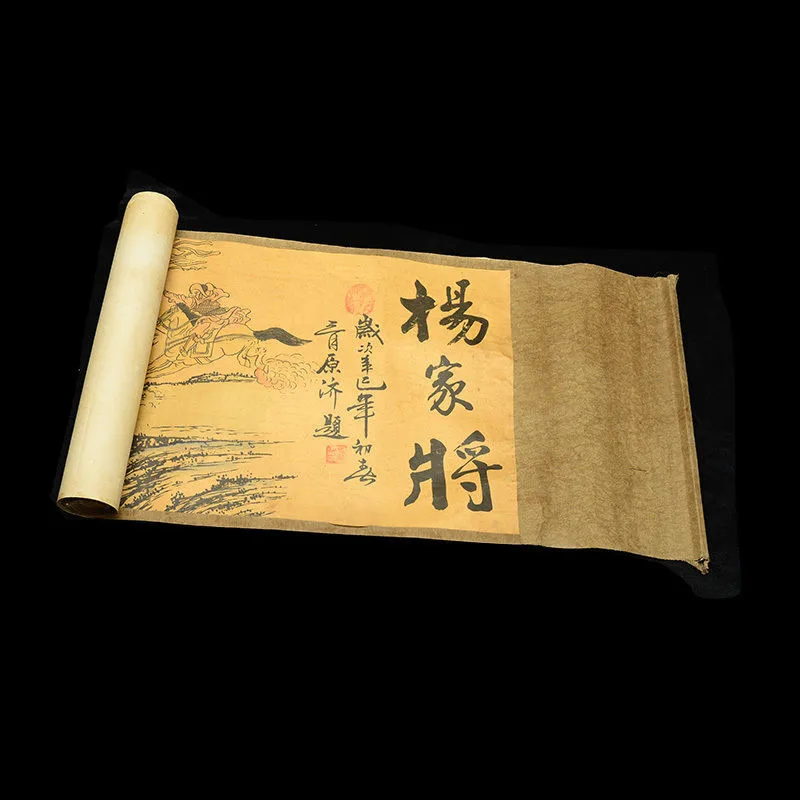 楊家將
歲次辛巳年初春
青原济題